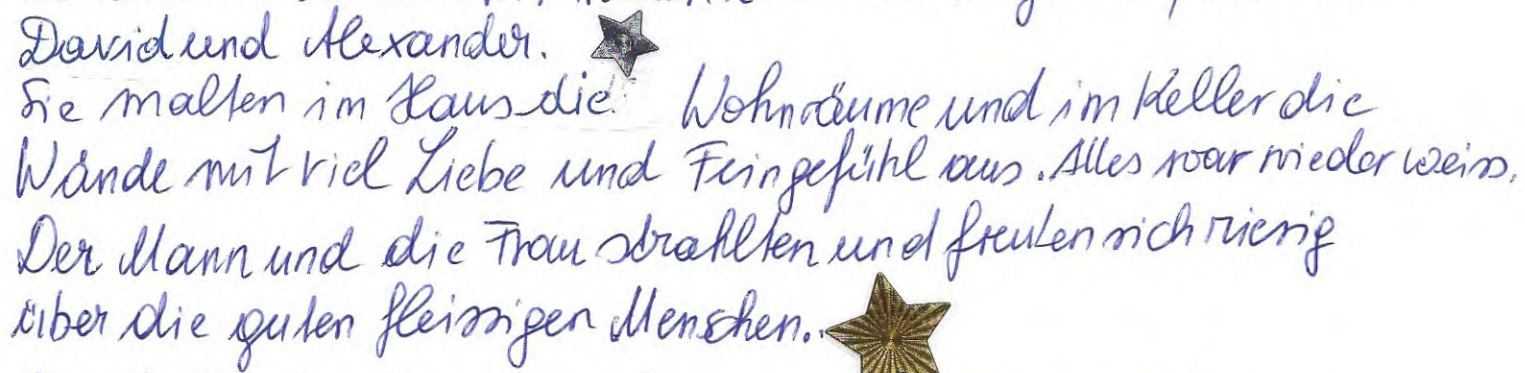 David und Alexander.
Sie malten im Haus die Wohnräume und im Keller die
Wände mit viel Liebe und Feingefühl aus. Alles war wieder weiss.
Der Mann und die Frau strahlten und freuten sich riesig
über die guten fleissigen Menschen.